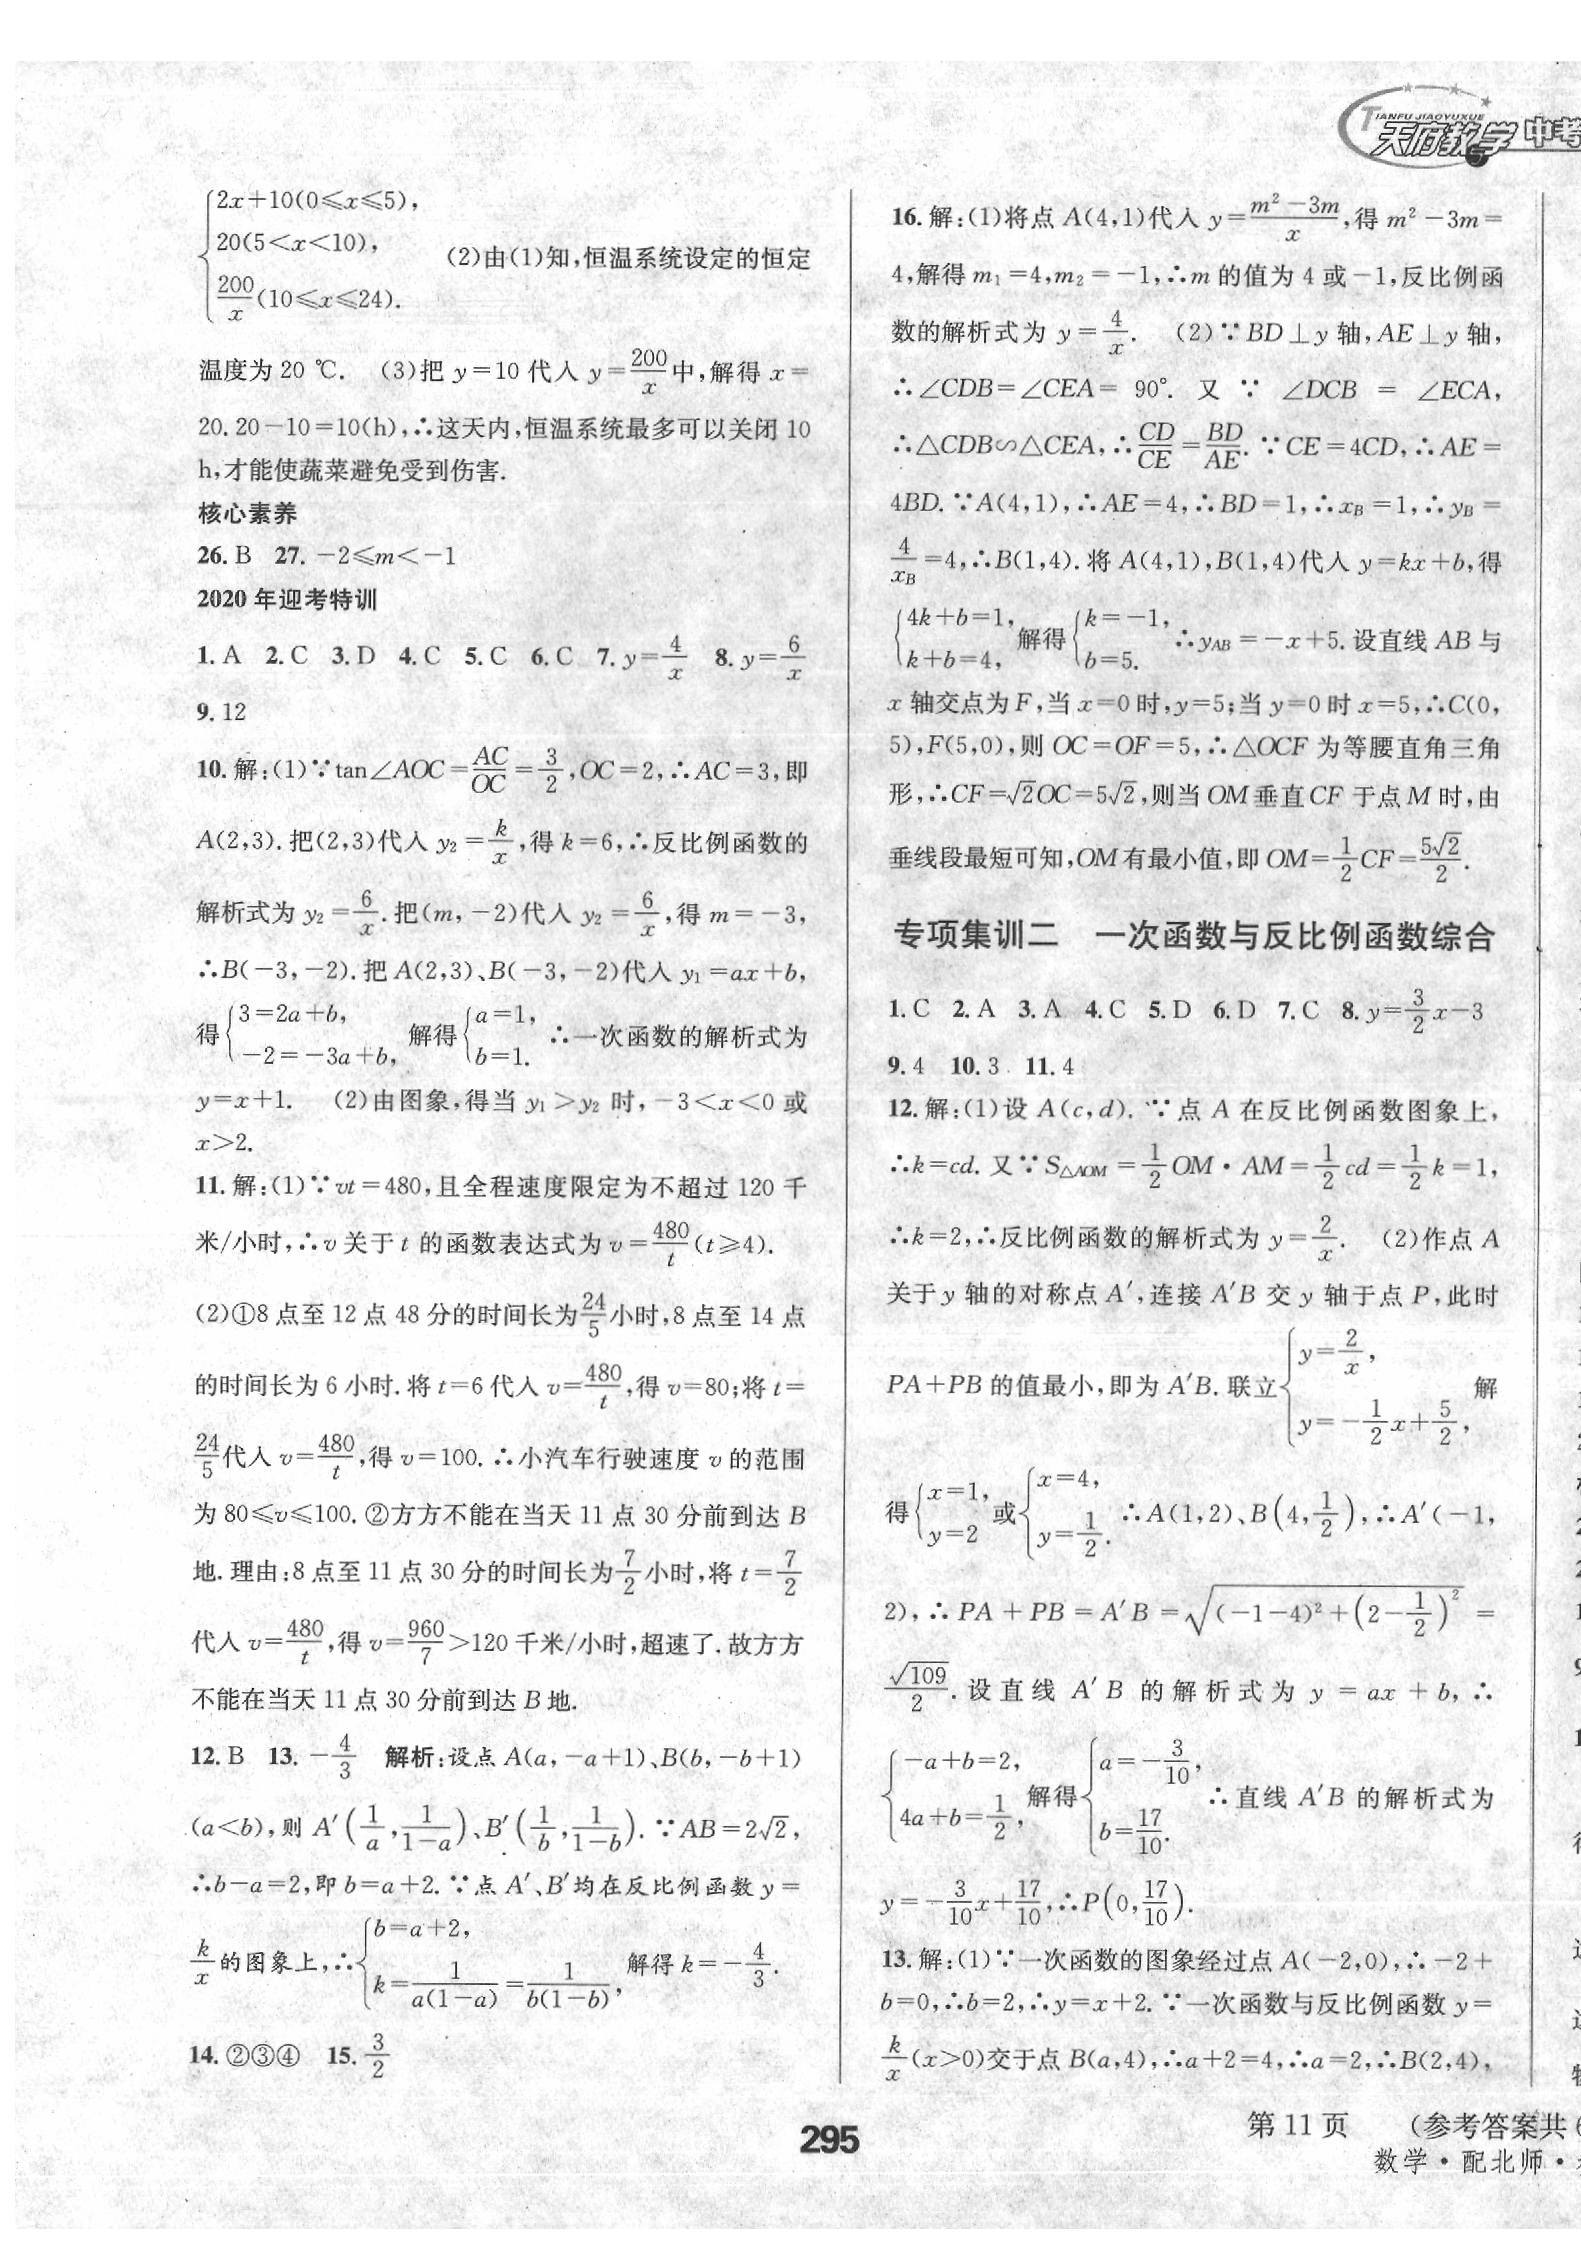 TIANFU JIAOYUXUE
天府教与学 中考
{2x+10(0⩽x⩽5),
20(5<x<10),
200/x(10⩽x⩽24). (2)由(1)知,恒温系统设定的恒定
温度为20 ℃. (3)把 y=10 代入 y=200/x中,解得 x=
20. 20-10=10(h),∴这天内,恒温系统最多可以关闭10
h,才能使蔬菜避免受到伤害.
核心素养
26. B 27. -2⩽m<-1
2020年迎考特训
1. A 2. C 3. D 4. C 5. C 6. C 7. y=4/x 8. y=6/x
9. 12
10. 解:(1)∵tan∠AOC=AC/OC=3/2,OC=2,∴AC=3,即
A(2,3). 把(2,3)代入 y₂=k/x,得 k=6,∴反比例函数的
解析式为 y₂=6/x. 把(m,-2)代入 y₂=6/x,得 m=-3,
∴B(-3,-2). 把 A(2,3)、B(-3,-2)代入 y₁=ax+b,
得{3=2a+b, -2=-3a+b, 解得{a=1, b=1. ∴一次函数的解析式为
y=x+1. (2)由图象,得当 y₁>y₂ 时,-3<x<0 或
x>2.
11. 解:(1)∵vt=480,且全程速度限定为不超过120千
米/小时,∴v关于t的函数表达式为v=480/t(t⩾4).
(2)①8点至12点48分的时间长为24/5小时,8点至14点
的时间长为6小时. 将t=6代入v=480/t,得v=80;将t=
24/5代入v=480/t,得v=100. ∴小汽车行驶速度v的范围
为80⩽v⩽100. ②方方不能在当天11点30分前到达B
地. 理由:8点至11点30分的时间长为7/2小时,将t=7/2
代入v=480/t,得v=960/7>120千米/小时,超速了. 故方方
不能在当天11点30分前到达B地.
12. B 13. -4/3 解析:设点A(a,-a+1)、B(b,-b+1)
(a<b),则A′(1/a,1/(1-a))、B′(1/b,1/(1-b)). ∵AB=2√2,
∴b-a=2,即b=a+2. ∵点A′、B′均在反比例函数y=
k/x的图象上,∴{b=a+2, k=1/(a(1-a))=1/(b(1-b)), 解得k=-4/3.
14. ②③④ 15. 3/2
16. 解:(1)将点A(4,1)代入y=(m²-3m)/x,得m²-3m=
4,解得m₁=4,m₂=-1,∴m的值为4或-1,反比例函
数的解析式为y=4/x. (2)∵BD⊥y轴,AE⊥y轴,
∴∠CDB=∠CEA=90°. 又∵∠DCB=∠ECA,
∴△CDB∽△CEA,∴CD/CE=BD/AE. ∵CE=4CD,∴AE=
4BD. ∵A(4,1),∴AE=4,∴BD=1,∴x_B=1,∴y_B=
4/x_B=4,∴B(1,4). 将A(4,1),B(1,4)代入y=kx+b,得
{4k+b=1, k+b=4, 解得{k=-1, b=5. ∴y_AB=-x+5. 设直线AB与
x轴交点为F,当x=0时,y=5;当y=0时x=5,∴C(0,
5),F(5,0),则OC=OF=5,∴△OCF为等腰直角三角
形,∴CF=√2OC=5√2,则当OM垂直CF于点M时,由
垂线段最短可知,OM有最小值,即OM=1/2CF=5√2/2.
专项集训二 一次函数与反比例函数综合
1. C 2. A 3. A 4. C 5. D 6. D 7. C 8. y=3/2x-3
9. 4 10. 3 11. 4
12. 解:(1)设A(c,d). ∵点A在反比例函数图象上,
∴k=cd. 又∵S△AOM=1/2OM·AM=1/2cd=1/2k=1,
∴k=2,∴反比例函数的解析式为y=2/x. (2)作点A
关于y轴的对称点A′,连接A′B交y轴于点P,此时
PA+PB的值最小,即为A′B. 联立{y=2/x, y=-1/2x+5/2, 解
得{x=1, y=2 或{x=4, y=1/2. ∴A(1,2)、B(4,1/2),∴A′(-1,
2),∴PA+PB=A′B=√((-1-4)²+(2-1/2)²)=
√109/2. 设直线A′B的解析式为y=ax+b,∴
{-a+b=2, 4a+b=1/2, 解得{a=-3/10, b=17/10. ∴直线A′B的解析式为
y=-3/10x+17/10,∴P(0,17/10).
13. 解:(1)∵一次函数的图象经过点A(-2,0),∴-2+
b=0,∴b=2,∴y=x+2. ∵一次函数与反比例函数y=
k/x(x>0)交于点B(a,4),∴a+2=4,∴a=2,∴B(2,4),
295
第11页 (参考答案共6
数学·配北师·